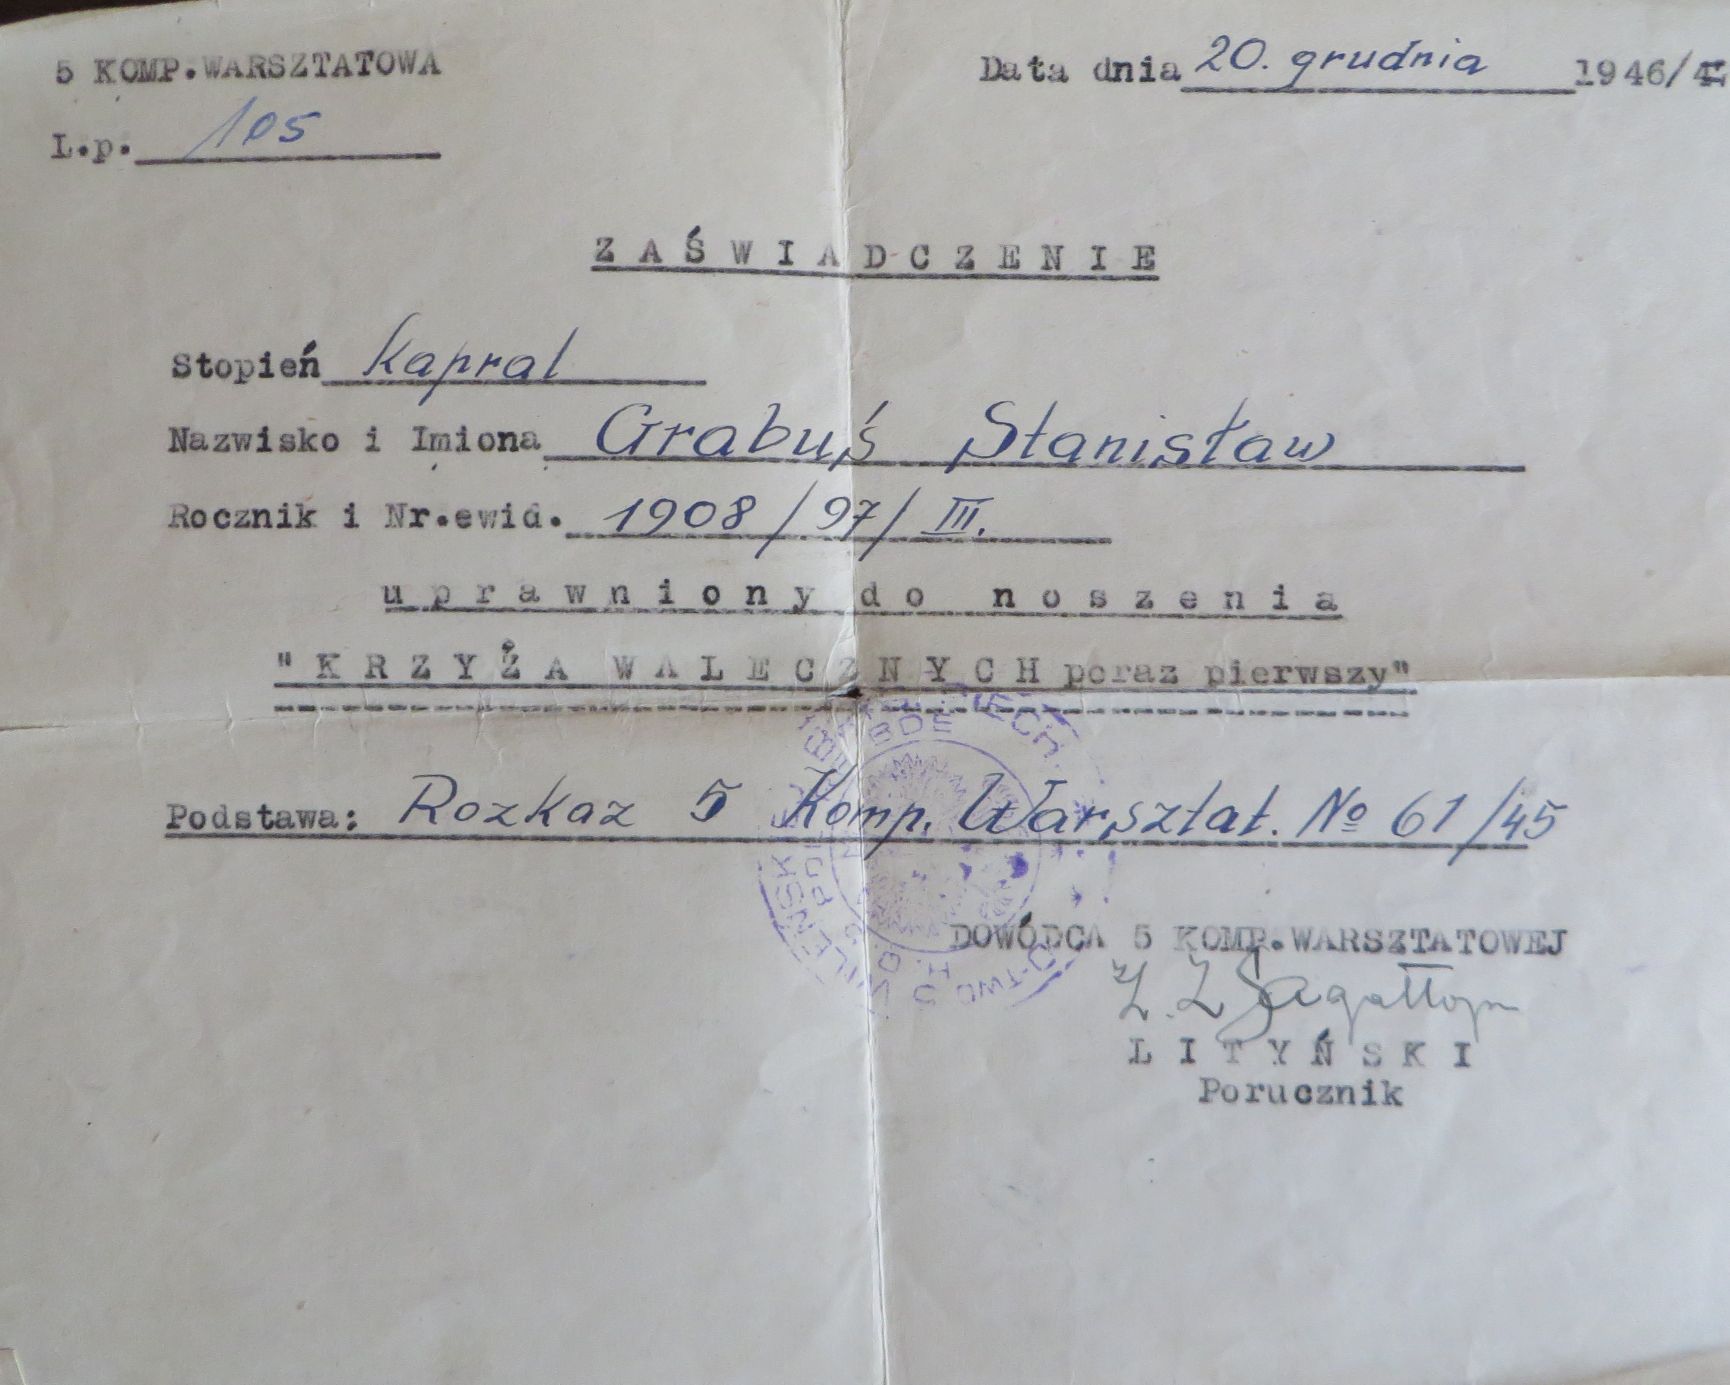 5 KOMP.WARSZTATOWA
Data dnia 20. grudnia 1946/47
L.p. 105
ZAŚWIADCZENIE
Stopień Kapral
Nazwisko i Imiona Grabuś Stanisław
Rocznik i Nr.ewid. 1908/97/III.
uprawniony do noszenia
"KRZYŻA WALECZNYCH poraz pierwszy"
Podstawa: Rozkaz 5 Komp. Warsztat. No 61/45
DOWÓDCA 5 KOMP.WARSZTATOWEJ
LITYŃSKI
Porucznik